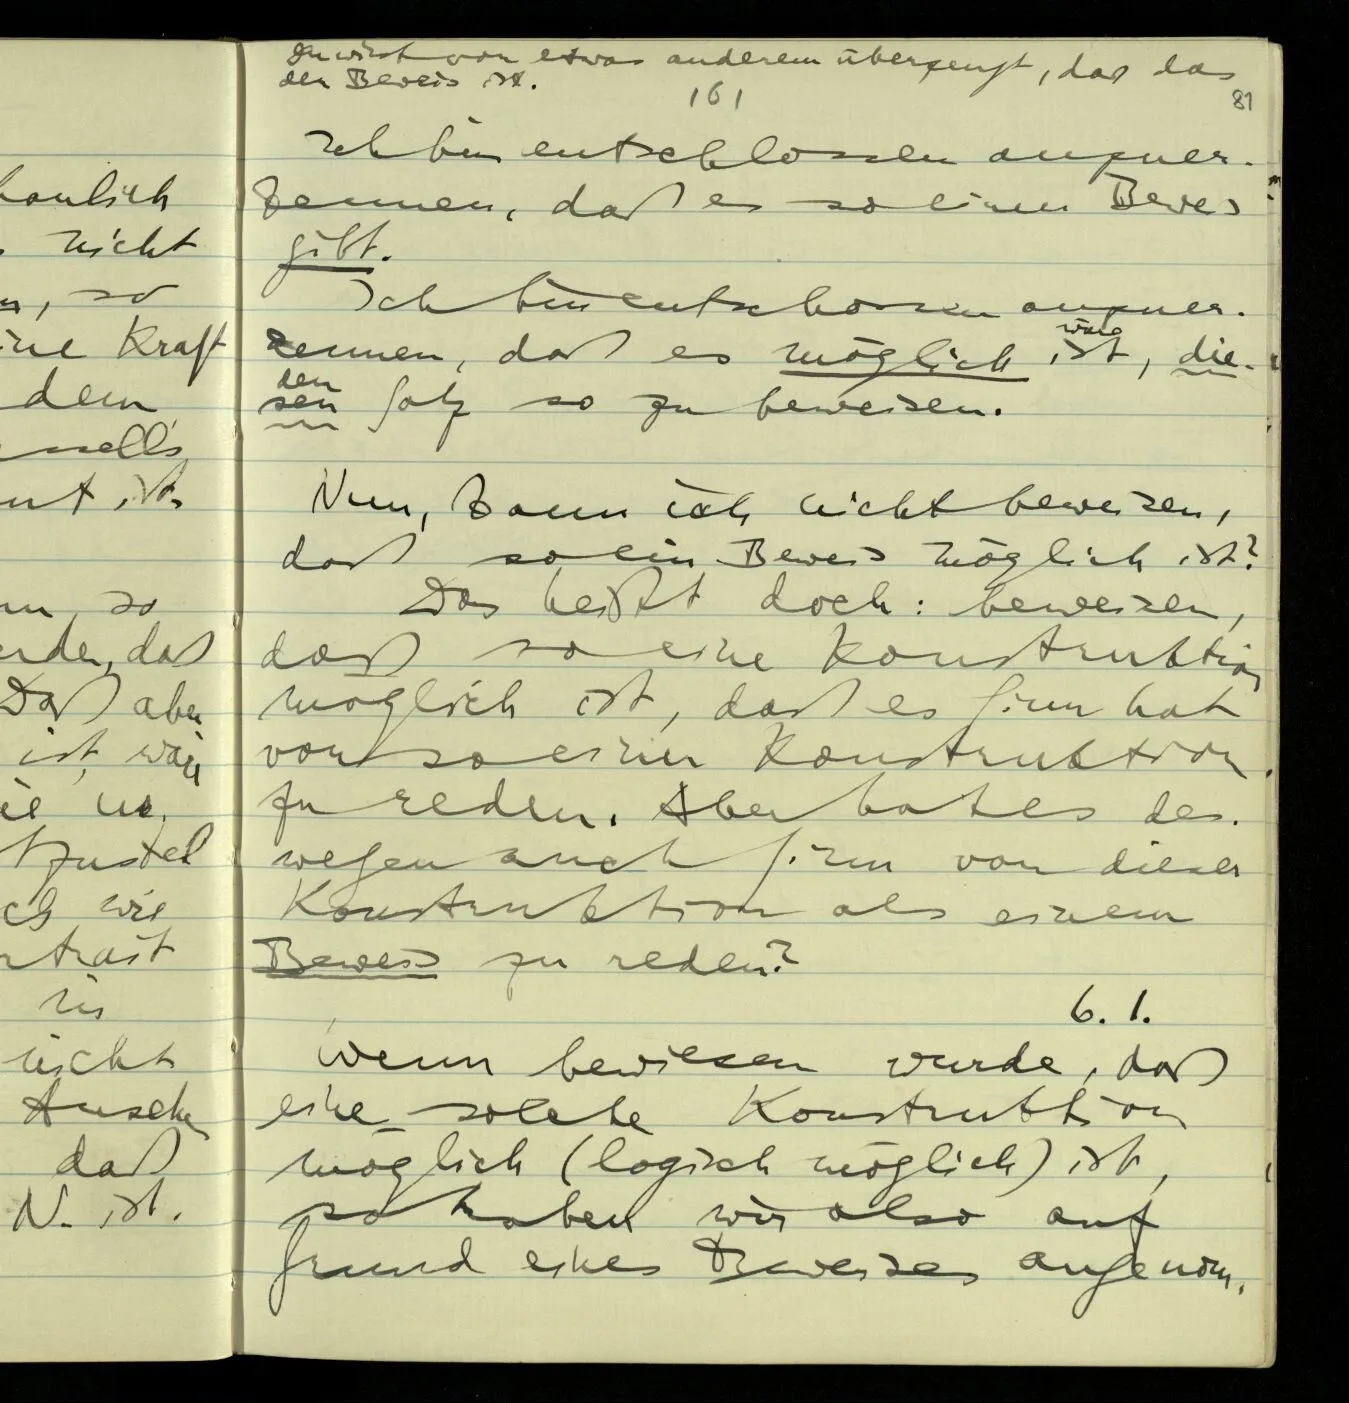 hanlich
nicht
, so
ine Kraft
dem
ssell's
nt ist.
nn, so
erden, daß
Daß aber
ist, wäre
ch wie
rtrait
nicht
Ansehen
daß
N. ist.
Du wirst von etwas anderem überzeugt, das das
der Beweis ist.
161
81
Ich bin entschlossen anzuer-
kennen, daß es so einen Beweis
gibt.
Ich bin entschlossen anzuer-
wäre
kennen, daß es möglich ist, die-
den
sen Satz so zu beweisen.
Nun, kann ich nicht beweisen,
daß so ein Beweis möglich ist?
Das heißt doch: beweisen,
daß so eine Konstruktion
möglich ist, daß es Sinn hat
von so einer Konstruktion
zu reden. Aber hat es des-
wegen auch Sinn von dieser
Konstruktion als einem
Beweis zu reden?
6. 1.
Wenn bewiesen wurde, daß
eine solche Konstruktion
möglich (logisch möglich) ist,
so haben wir also auf
Grund eines Beweises angenom-